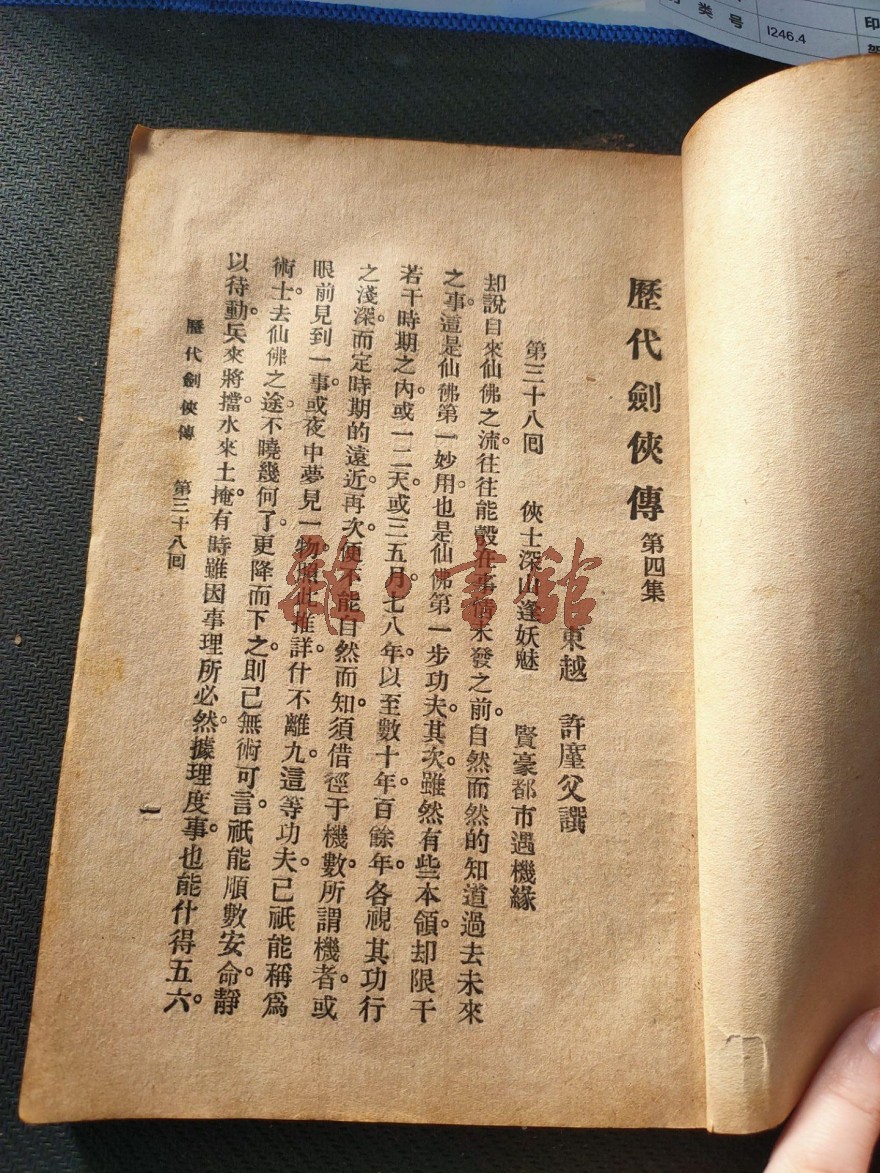 歷代劍俠傳 第四集
東越 許廑父譔
第三十八回 俠士深山逢妖魅 賢豪都市遇機緣
却說自來仙佛之流。往往能彀在事情未發之前。自然而然的知道過去未來
之事。這是仙佛第一妙用。也是仙佛第一步功夫。其次雖然有些本領。却限于
若干時期之內。或一二天。或三五月。七八年。以至數十年百餘年。各視其功行
之淺深。而定時期的遠近。再次便不能自然而知。須借徑于機數。所謂機者。或
眼前見到一事。或夜中夢見一物。照此推詳。什不離九。這等功夫。已祇能稱爲
術士。去仙佛之途。不曉幾何了。更降而下之。則已無術可言。祇能順數安命。靜
以待動。兵來將擋。水來土掩。有時雖因事理所必然。據理度事。也能什得五六。
歷代劍俠傳 第三十八回
一
雜·書館
类号
I246.4
印